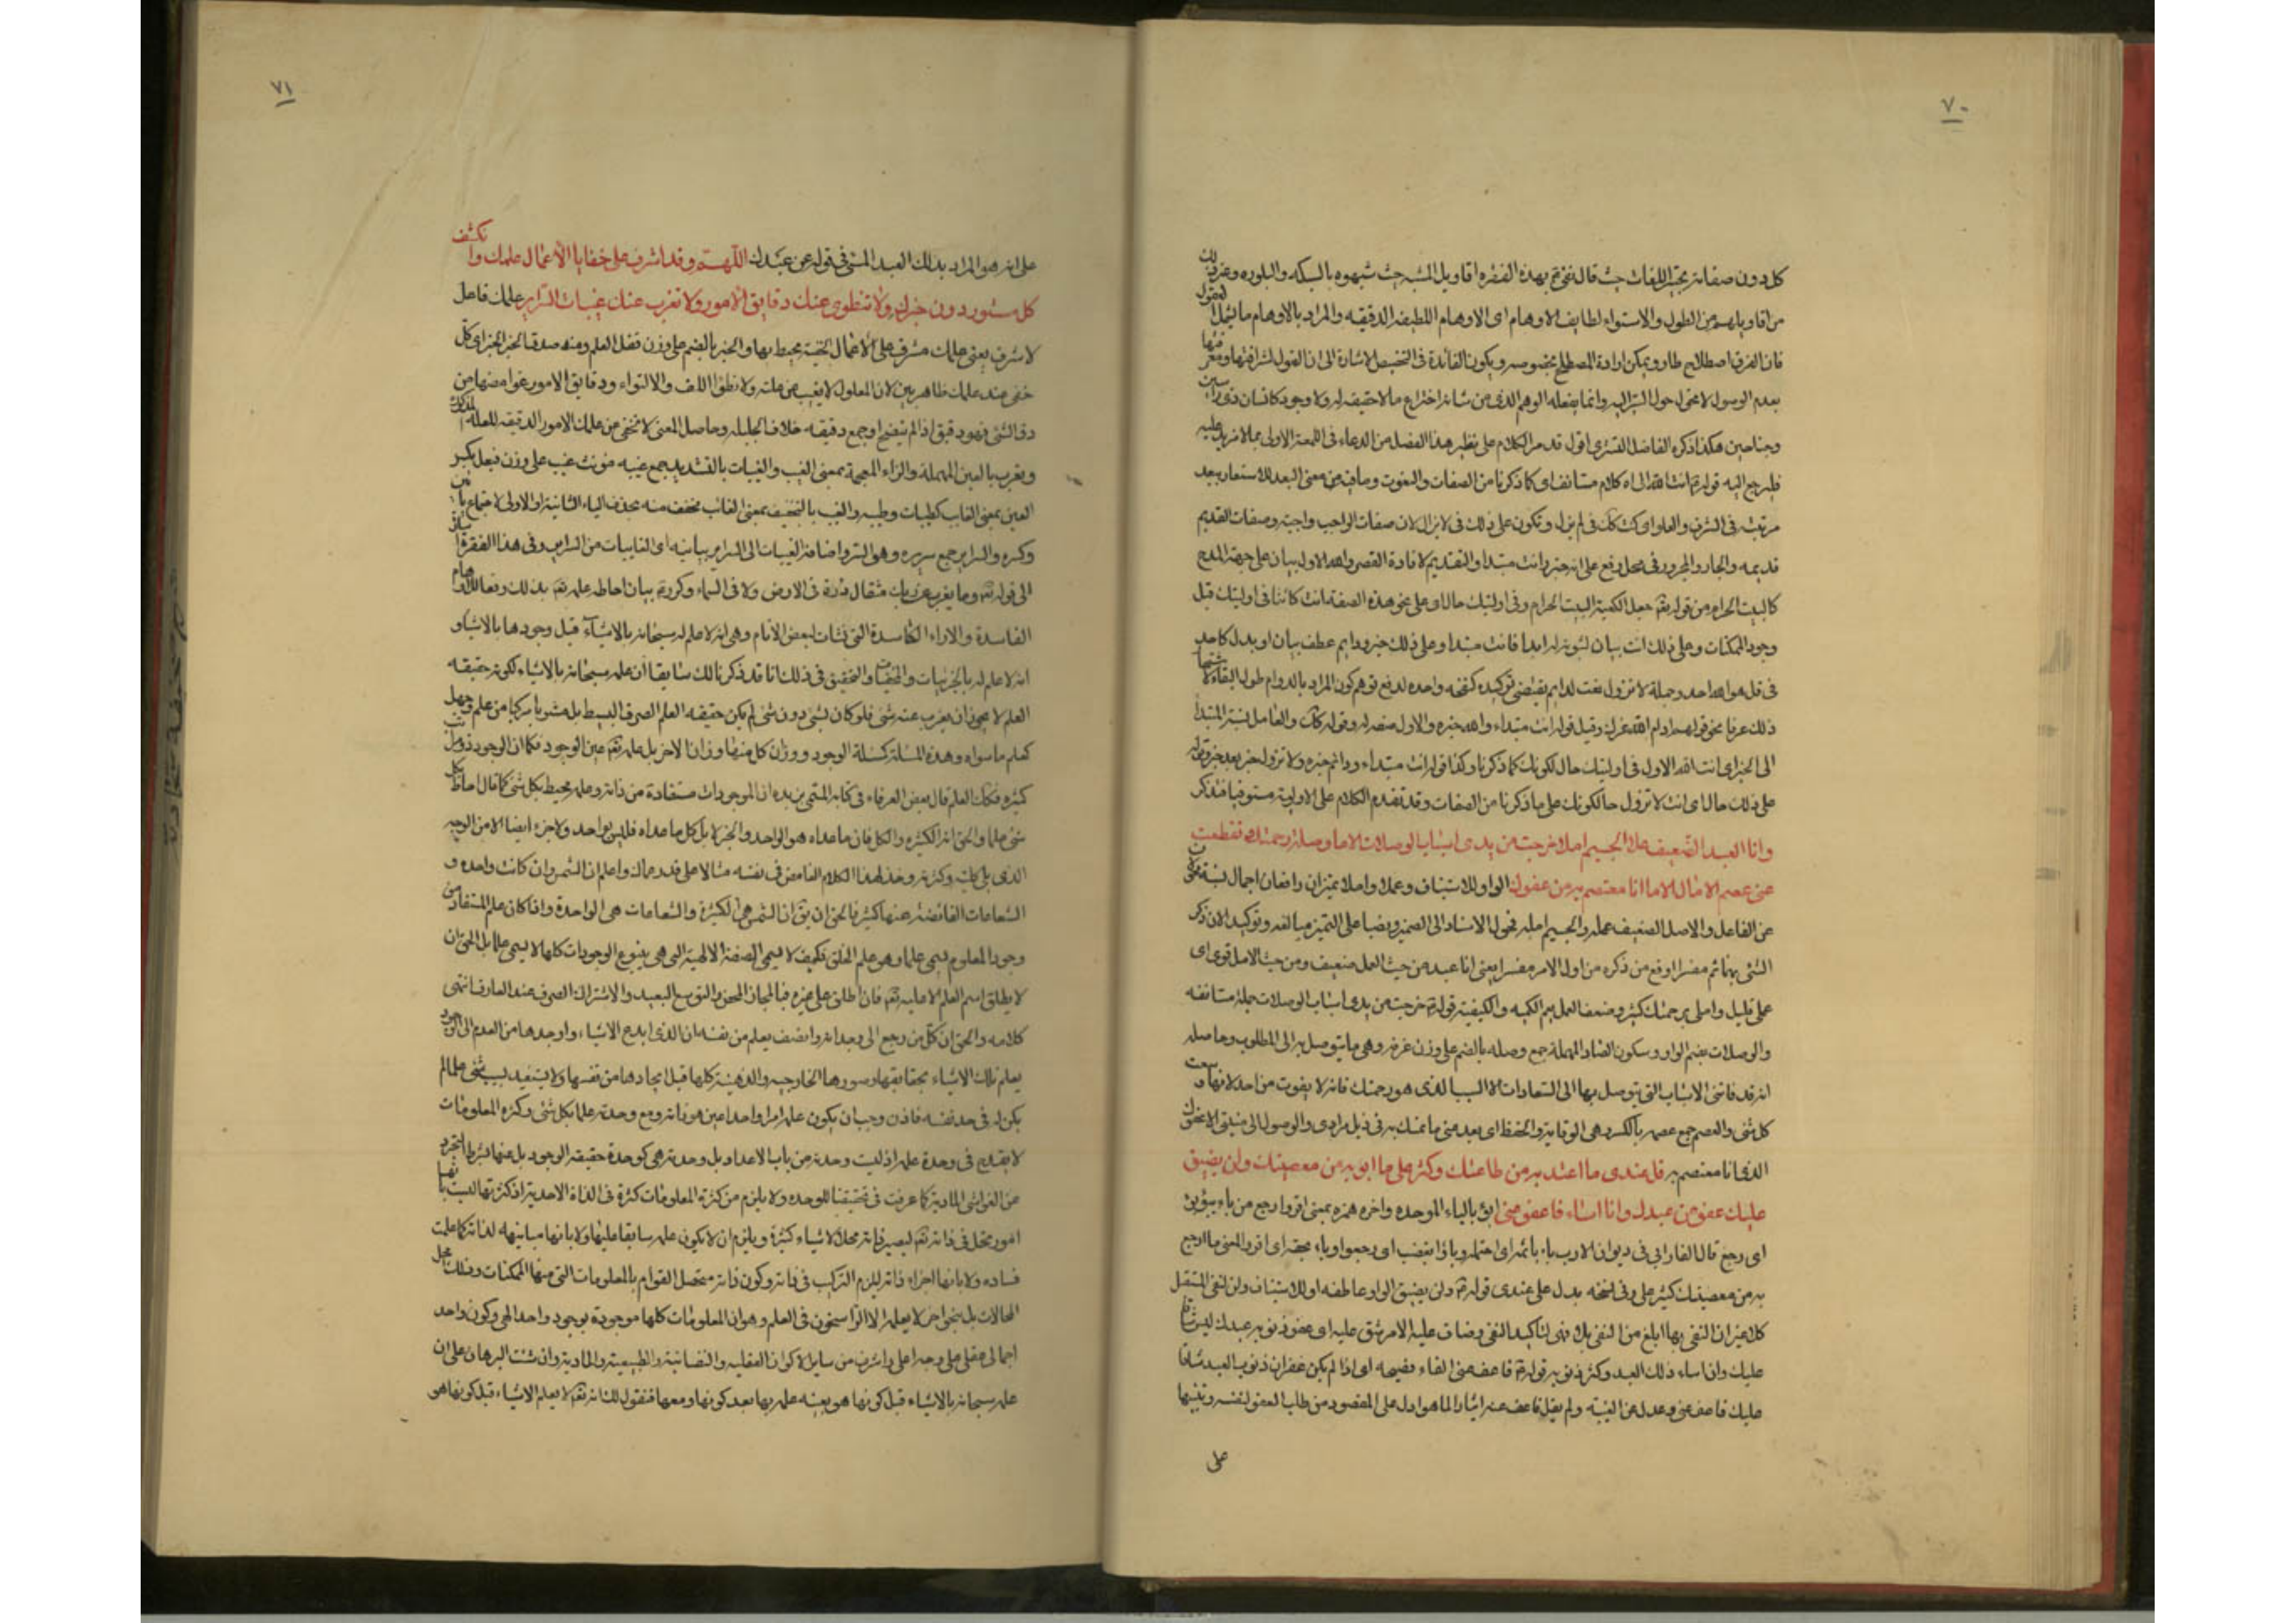 ٧٠
كل دون صفاته تحير اللغات حيث قال نفخ بهذه الفقره اقاويل المشبه حيث شبهوه بالسبكه والبلوره وغير ذلك
من اقاويلهم من الطول والاستواء لطايف الاوهام اى الاوهام اللطيفه الدقيقه والمراد بالاوهام ما يشمل العقول
فان الفرق اصطلاح طار ويمكن ارادة المصطلح بخصوصه ويكون الفائدة فى التخصيص الاشارة الى ان العقول لشرافتها ومعرفتها
بعدم الوصول لا تحول حول السراليه وانما يفعله الوهم الذى من شانه اختراع ما لا حقيقه له ولا وجود كانسان ذى راسين
وجناحين هكذا ذكره الفاضل اقول قد مر الكلام على نظير هذا الفصل من الدعاء فى اللمعة الاولى بما لا مزيد عليه
فليرجع اليه قوله انت الله الاه كلام مستانف اى كما ذكرنا من الصفات والنعوت وما فيه من معنى البعد للاستعار ببعد
مرتبته فى الشرف والعلو اى كنت كذلك فى لم يزل وتكون على ذلك فى لا يزال لان صفات الواجب واجبة وصفات القديم
قديمه والجار والمجرور فى محل رفع على انه خبر وانت مبتدا والتقديم لافادة القصر والله الاول بيان على جهة المدح
كالبيت الحرام من قوله تعم جعل الكعبة البيت الحرام وفى اوليتك حال اى على نحو هذه الصفة انت كائنا فى اوليتك قبل
وجود الممكنات وعلى ذلك انت بيان لثبوته له ابدا فانت مبتدا وعلى ذلك خبر ودايم عطف بيان او بدل كاحد
فى قل هو الله احد وجملة لا تزول نعت لدايم يقتضى توكيده كنفخه واحده لدفع توهم كون المراد بالدوام طول البقاء
ذلك عرفا نحو قولهم ادام الله عزك وقيل قوله انت مبتداء والله خبره والاول صفه له وقوله كذلك والعامل نسبة المبتدا
الى الخبر اى انت الله الاول فى اوليتك حال كونك كما ذكرنا وكذا قوله انت مبتداء ودائم خبره ولا تزول خبر بعد خبر وقوله
على ذلك حال اى انت لا تزول حال كونك على ما ذكرنا من الصفات وقد تقدم الكلام على الاولية مستوفيا فتذكر
وانا العبد الضعيف عملا الجسيم املا خرجت من يدى اسباب الوصلات الا ما وصله رحمتك وتقطعت
عنى عصم الامال الا ما انا معتصم به من عفوك الواو للاستيناف وعملا واملا تميزان رافعان اجمال نسبة محولان
عن الفاعل والاصل الضعيف عمله والجسيم امله فحول الاسناد الى الضمير ونصبا على التميز مبالغه وتوكيدا لان ذكر
الشئ مبهما ثم مفسرا اوقع من ذكره من اول الامر مفسرا يعنى انا عبد من حيث العمل ضعيف ومن حيث الامل قوى اى
عملى قليل واملى برحمتك كثير وضعف العمل يعم الكميه والكيفية قوله خرجت من يدى اسباب الوصلات جملة مستانفه
والوصلات بضم الواو وسكون الصاد المهملة جمع وصله بالضم على وزن غرفه وهى ما يتوصل به الى المطلوب وحاصله
انه قد فاتنى الاسباب التى يتوصل بها الى السعادات الا السبب الذى هو رحمتك فانه لا يفوت من احد لانها وسعت
كل شئ والعصم جمع عصمه بالكسر وهى الوقاية والحفظ اى بعد عنى ما تمسك به فى نيل مرادى والوصول الى منيتى الا عفوك
الذى انا معتصم به قل عندى ما اعتد به من طاعتك وكثر على ما ابوء به من معصيتك ولن يضيق
عليك عفو عن عبدك وان اساء فاعف عنى ابوء بالباء الموحده واخره همزه بمعنى اقر وارجع من باء يبوء
اى رجع قال الفارابى فى ديوان الادب باء باثمه اى احتمله وباؤا بغضب اى رجعوا وباء بحقه اى اقر والمعنى ما ارجع
به من معصيتك كثير على وفى نسخه بدل على عندى قوله ولن يضيق الواو عاطفه او للاستيناف ولن لنفى المستقبل
كلا غير ان النفى بها ابلغ من النفى بلا فهى لتاكيد النفى وضاق عليه الامر شق عليه اى عفو ذنوب عبدك ليس شاقا
عليك وان اساء ذلك العبد وكثر ذنوبه قوله فاعف عنى الفاء فصيحه اى اذا لم يكن غفران ذنوب العبد شاقا
عليك فاعف عنى وعدل عن الغيبة ولم يقل فاعف عنه ايثارا لما هو ادل على المقصود من طلب العفو لنفسه وتنبيها
على
٧١
على انه هو المراد بذلك العبد المسئ فى قوله عن عبدك اللهم وقد اشرف على خفايا الاعمال علمك وانكشف
كل مستور دون خبرك ولا تنطوى عنك دقايق الامور ولا تعزب عنك غيبات السراير علمك فاعل
لاشرف يعنى علمك مشرف على الاعمال الخفية محيط بها والخبر بالضم على وزن قفل العلم ومنه صدق الخبر الخبر اى كل
خفى عند علمك ظاهر بين لان المعلول لا يغيب عن علته ولانطواء اللف والالتواء ودقايق الامور غوامضها من
دق الشئ فهو دقيق اذا لم يتضح او جمع دقيقه خلاف الجليله وحاصل المعنى لا تخفى من علمك الامور الدقيقه للعله المذكورة
ويعزب بالعين المهملة والزاء المعجمة بمعنى الغيب والغيبات بالتشديد جمع غيبه مؤنث غيب على وزن فيعل بكسر
العين بمعنى الغايب كطيبات وطيبه والغيب بالتخفيف بمعنى الغائب مخفف منه بحذف الياء الثانية او الاولى لاجتماع يائين
وكسره والسراير جمع سريره وهو السر واضافة الغيبات الى السراير بيانيه اى الغايبات من السراير وفى هذا الفقره اشارة
الى قوله تعم وما يعزب عن ربك مثقال ذرة فى الارض ولا فى السماء وكرر بيان احاطه علمه تعم بذلك دفعا للاوهام
الفاسدة والاراء الكاسدة التى نشات لبعض الانام وهى انه لا علم له سبحانه بالاشياء قبل وجودها بالاشياء و
انه لا علم له بالجزئيات والخفيات والتحقيق فى ذلك انا قد ذكرنا لك سابقا ان علمه سبحانه بالاشياء لكونه حقيقه
العلم لا يجوز ان يعزب عنه شئ فلو كان بشئ دون شئ لم يكن حقيقه العلم الصرف البسيط بل مشوبا مركبا من علم وجهل
كعلم ما سواه وهذه المسئلة كمسئلة الوجود ووزان كل منهما وزان الاخر بل علمه تعم عين الوجود فكما ان الوجود ذو مراتب
كثيره فكذلك العلم قال بعض العرفاء فى كتابه المسمى ان الموجودات مستفادة من ذاته وعلمه محيط بكل شئ كما قال احاط بكل
شئ علما والحق انه الكثير والكل فان ما عداه هو الواحد والجزء لا بل كل ما عداه فليس بواحد ولا جزء ايضا الا من الوجه
الذى يلى كليته وكثرته وخذ لهذا الكلام الغامض فى نفسه مثالا على قدر حالك واعلم ان الشمس وان كانت واحده و
الشعاعات الفائضة عنها كثيره فالحق ان يق ان الشمس هى الكثيرة والشعاعات هى الواحدة واذا كان علم المستفاد من
وجود المعلوم يسمى علما وهو علم الخلق فكيف لا يسمى الصفة الالهية التى هى ينبوع الوجودات كلها لا يسمى علما بل الحق ان
لا يطلق اسم العلم الا عليه تعم فان اطلق على غيره فبالمجاز المحض والتوسع البعيد والاشتراك الصرف عند العارف انتهى
كلامه والحق ان كل من رجع الى وجدانه وانصف يعلم من نفسه ان الذى ابدع الاشياء واوجدها من العدم الى الوجود
يعلم تلك الاشياء بحقايقها وصورها الخارجيه والذهنية كلها قبل ايجادها من نفسها ولا يستفيد بسبب شئ علما لم
يكن له فى حد نفسه فاذن وجب ان يكون علمه امرا واحدا عين هو ذاته ومع وحدته علما بكل شئ وكثره المعلومات
لا يقدح فى وحدة علمه اذ ليست وحدته من باب الاعداد بل وحدته هى كوحدة حقيقه الوجود بل عنها بشرط التجرد
عن الغواشى المادية كما عرفت فى تحقيقنا للوحده ولا يلزم من كثرة المعلومات كثرة فى الذاة الاحدية اذ كثرتها ليست بانها
امور تحل فى ذاته تعم ليصير ذاته محلا لاشياء كثيرة ويلزم ان لا يكون علمه سابقا عليها ولا بانها مباينه لذاته كما علمت
فساده ولا بانها اجزاء ذاته ليلزم التركب فى ذاته وكون ذاته متحصل القوام بالمعلومات التى منها الممكنات وذلك محل
المحالات بل بنحو اخر لا يعلمه الا الراسخون فى العلم وهو ان المعلومات كلها موجودة بوجود واحد الهى وكون واحد
اجمالى عقلى على وجه اعلى واشرف من ساير الاكوان العقليه والنفسانية والطبيعية والمادية وان شئت البرهان على ان
علمه سبحانه بالاشياء قبل كونها هو بعينه علمه بها بعد كونها ومعها فنقول لك انه تعم لا يعلم الاشياء قبل كونها هو